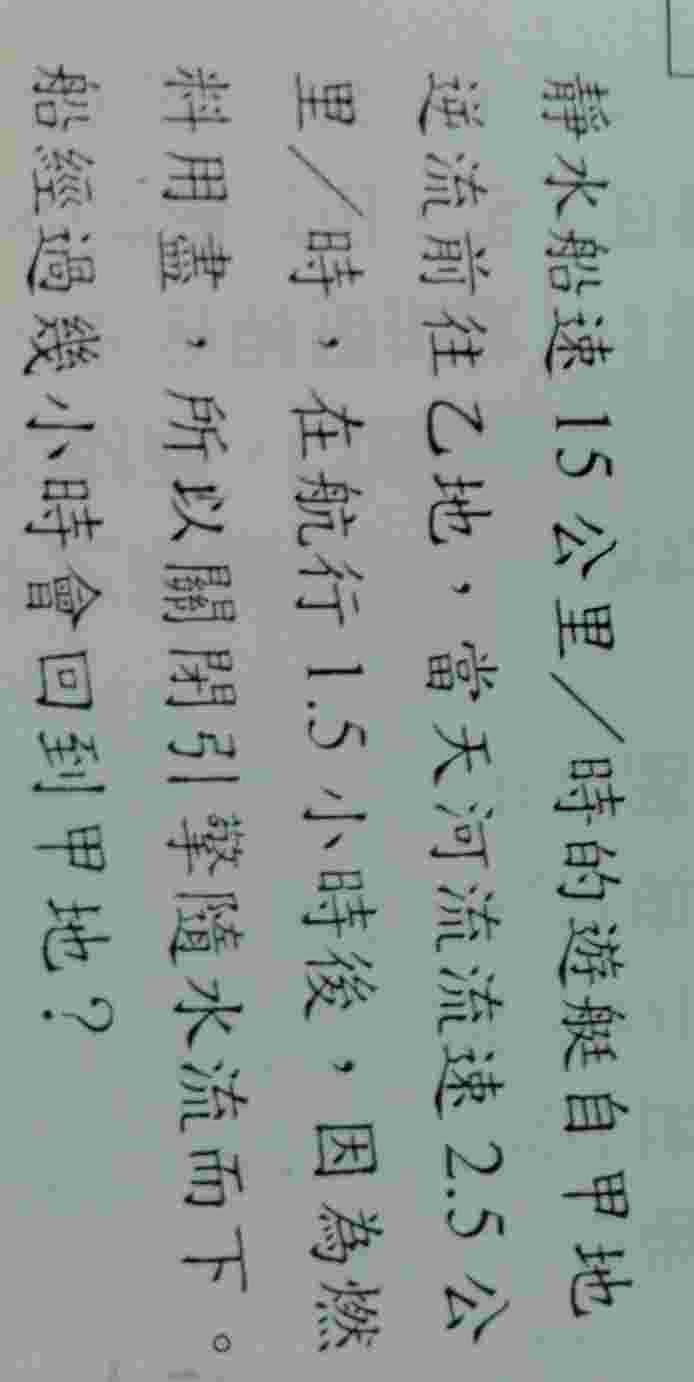 靜水船速 15 公里／時的遊艇自甲地
逆流前往乙地，當天河流流速 2.5 公
里／時，在航行 1.5 小時後，因為燃
料用盡，所以關閉引擎隨水流而下。
船經過幾小時會回到甲地？